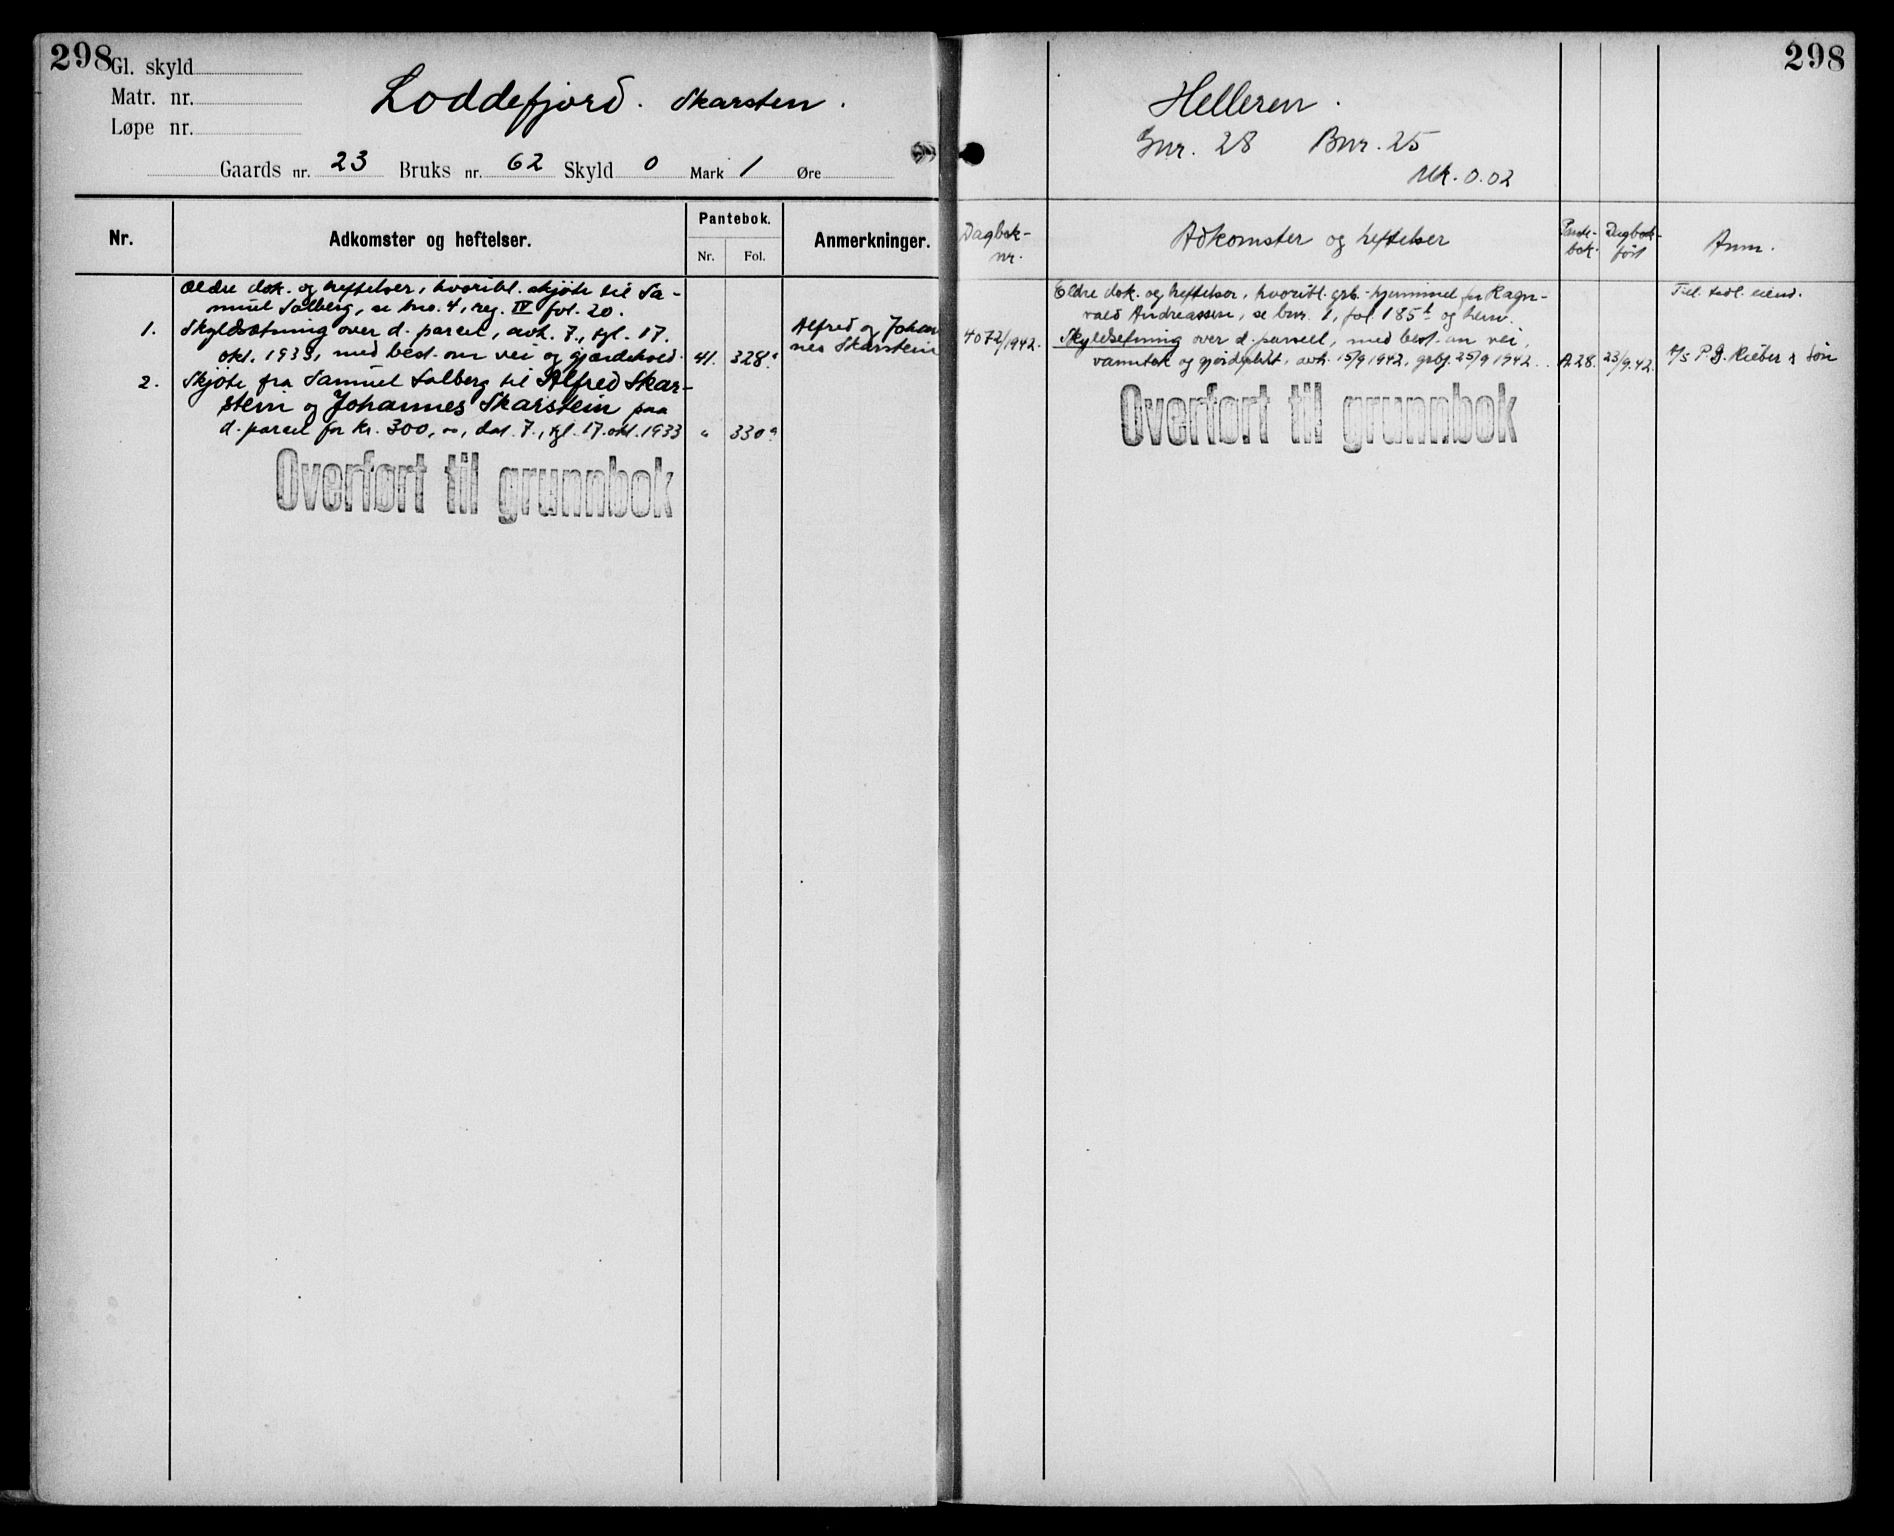 298
Gl. skyld
Matr. nr.
Løpe nr.
Loddefjord. Skarsten.
Gaards nr. 23 Bruks nr. 62 Skyld 0 Mark 1 Øre
Nr. Adkomster og heftelser. Pantebok. Anmerkninger.
Nr. Fol.
Ældre dok. og heftelser, hvoribl. skjøte til Sa-
muel Solberg, se bno. 4, reg. IV fol. 20.
1. Skyldsætning over d. parcel, avh. 7., tgl. 17.
okt. 1933, med best. om vei og gjærdehold. 41. 328a
Alfred og Johan
nes Skarstein
2. Skjøte fra Samuel Solberg til Alfred Skar-
stein og Johannes Skarstein paa
d. parcel for kr. 300, oo, dat. 7., tgl. 17. okt. 1933 " 330a
Overført til grunnbok
298
Helleren.
Gnr. 28 Bnr. 25
Mk. 0.02
Dagbok-
nr.
Adkomster og heftelser
Pante-
bok.
Dagbok-
ført
Anm.
Eldre dok. og heftelser, hvoribl. grb.-hjemmel for Ragn-
vald Andreassen, se bnr. 1, fol. 185b og henv.
Til. tedl. eiend.
4072/1942. Skyldsetning over d. parsell, med best. om vei,
vanntak og gjerdeplikt, avh. 15/9 1942, grbf. 25/9 1942. A 28. 23/9.42. A/S P.G. Rieber & Søn
Overført til grunnbok